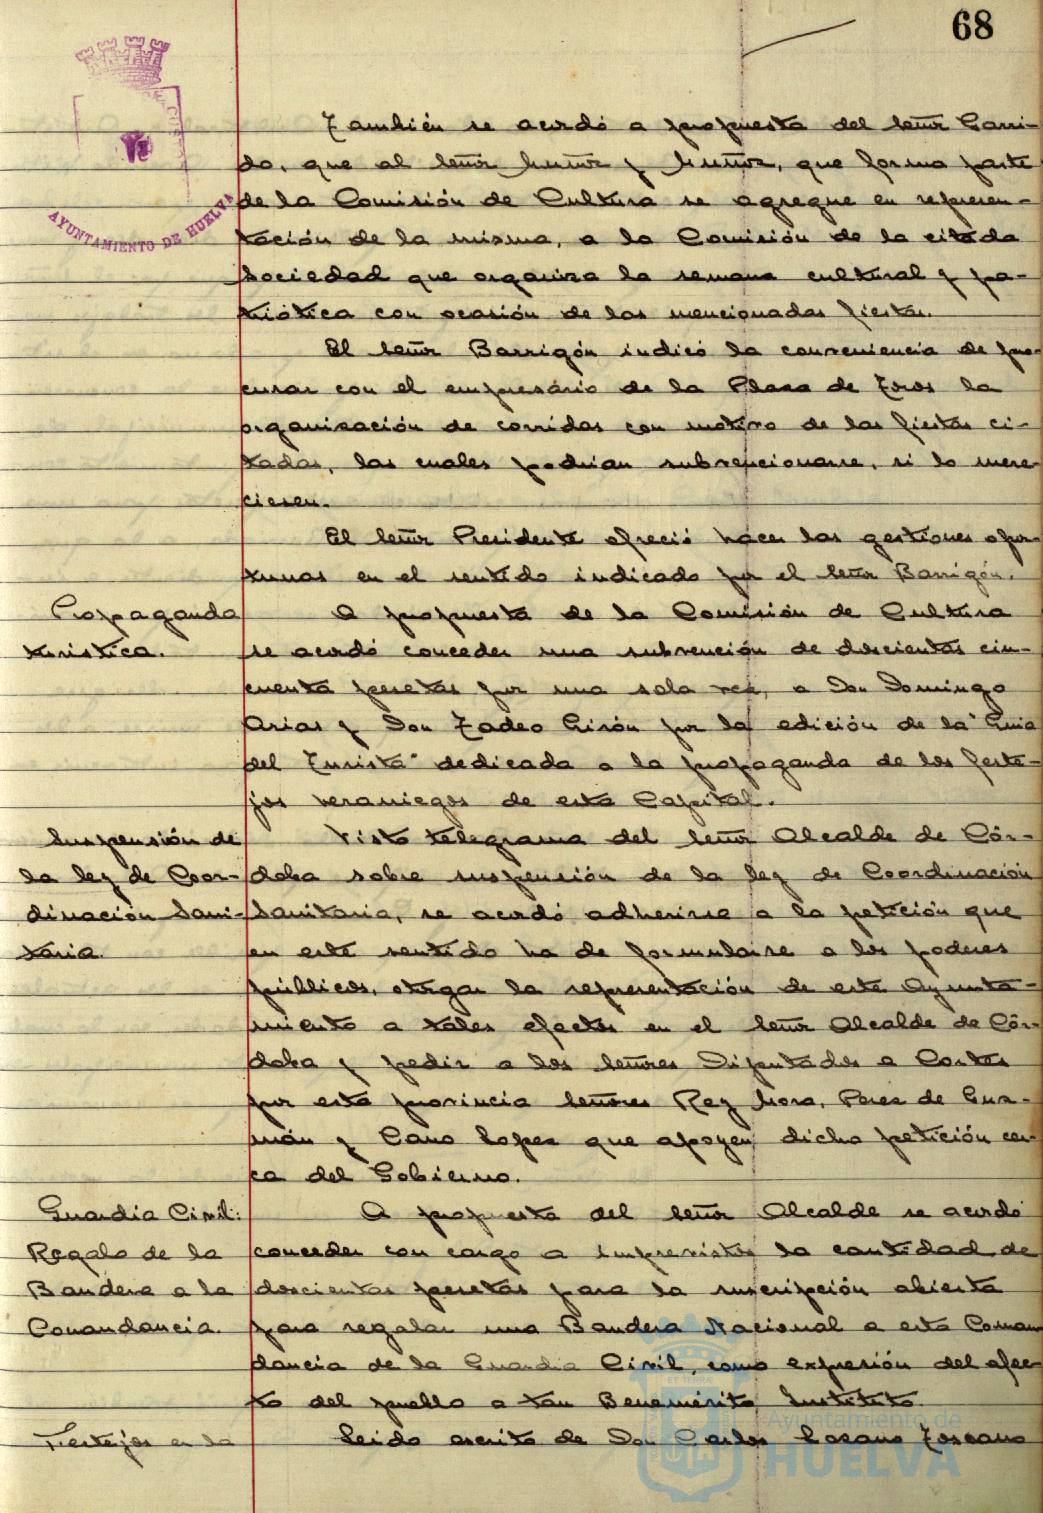 68
AYUNTAMIENTO DE HUELVA
También se acordó a propuesta del señor Garri-
do, que al señor Muñoz y Muñoz, que forma parte
de la Comisión de Cultura se agregue en represen-
tación de la misma, a la Comisión de la citada
Sociedad que organiza la semana cultural y pa-
triótica con ocasión de las mencionadas fiestas.
El señor Barrigón indicó la conveniencia de pro-
curar con el empresário de la Plaza de Toros la
organización de corridas con motivo de las fiestas ci-
tadas, las cuales podrian subvencionarse, si lo mere-
ciesen.
El señor Presidente ofreció hacer las gestiones opor-
tunas en el sentido indicado por el señor Barrigón.
Propaganda
turistica.
A propuesta de la Comisión de Cultura
se acordó conceder una subvención de doscientas cin-
cuenta pesetas por una sola vez, a Don Domingo
Arias y Don Tadeo Girón por la edición de la "Guia
del Turista" dedicada a la propaganda de los feste-
jos veraniegos de esta Capital.
Suspensión de
la ley de Coor-
dinación Sani-
taria.
Visto telegrama del señor Alcalde de Cór-
doba sobre suspensión de la ley de Coordinación
Sanitaria, se acordó adherirse a la petición que
en este sentido ha de formularse a los poderes
públicos, otorgar la representación de este Ayunta-
miento a tales efectos en el señor Alcalde de Cór-
doba y pedir a los señores Diputados a Cortes
por esta provincia señores Rey Mora, Perez de Guz-
mán y Cano Lopez que apoyen dicha petición cer-
ca del Gobierno.
Guardia Civil:
Regalo de la
Bandera a la
Comandancia.
A propuesta del señor Alcalde se acordó
conceder con cargo a imprevistos la cantidad de
doscientas pesetas para la suscripción abierta
para regalar una Bandera Nacional a esta Coman-
dancia de la Guardia Civil, como expresión del afec-
to del pueblo a tan Benemérito Instituto.
Festejos en la
Leido escrito de Don Carlos Lozano Toscano
Ayuntamiento de
HUELVA